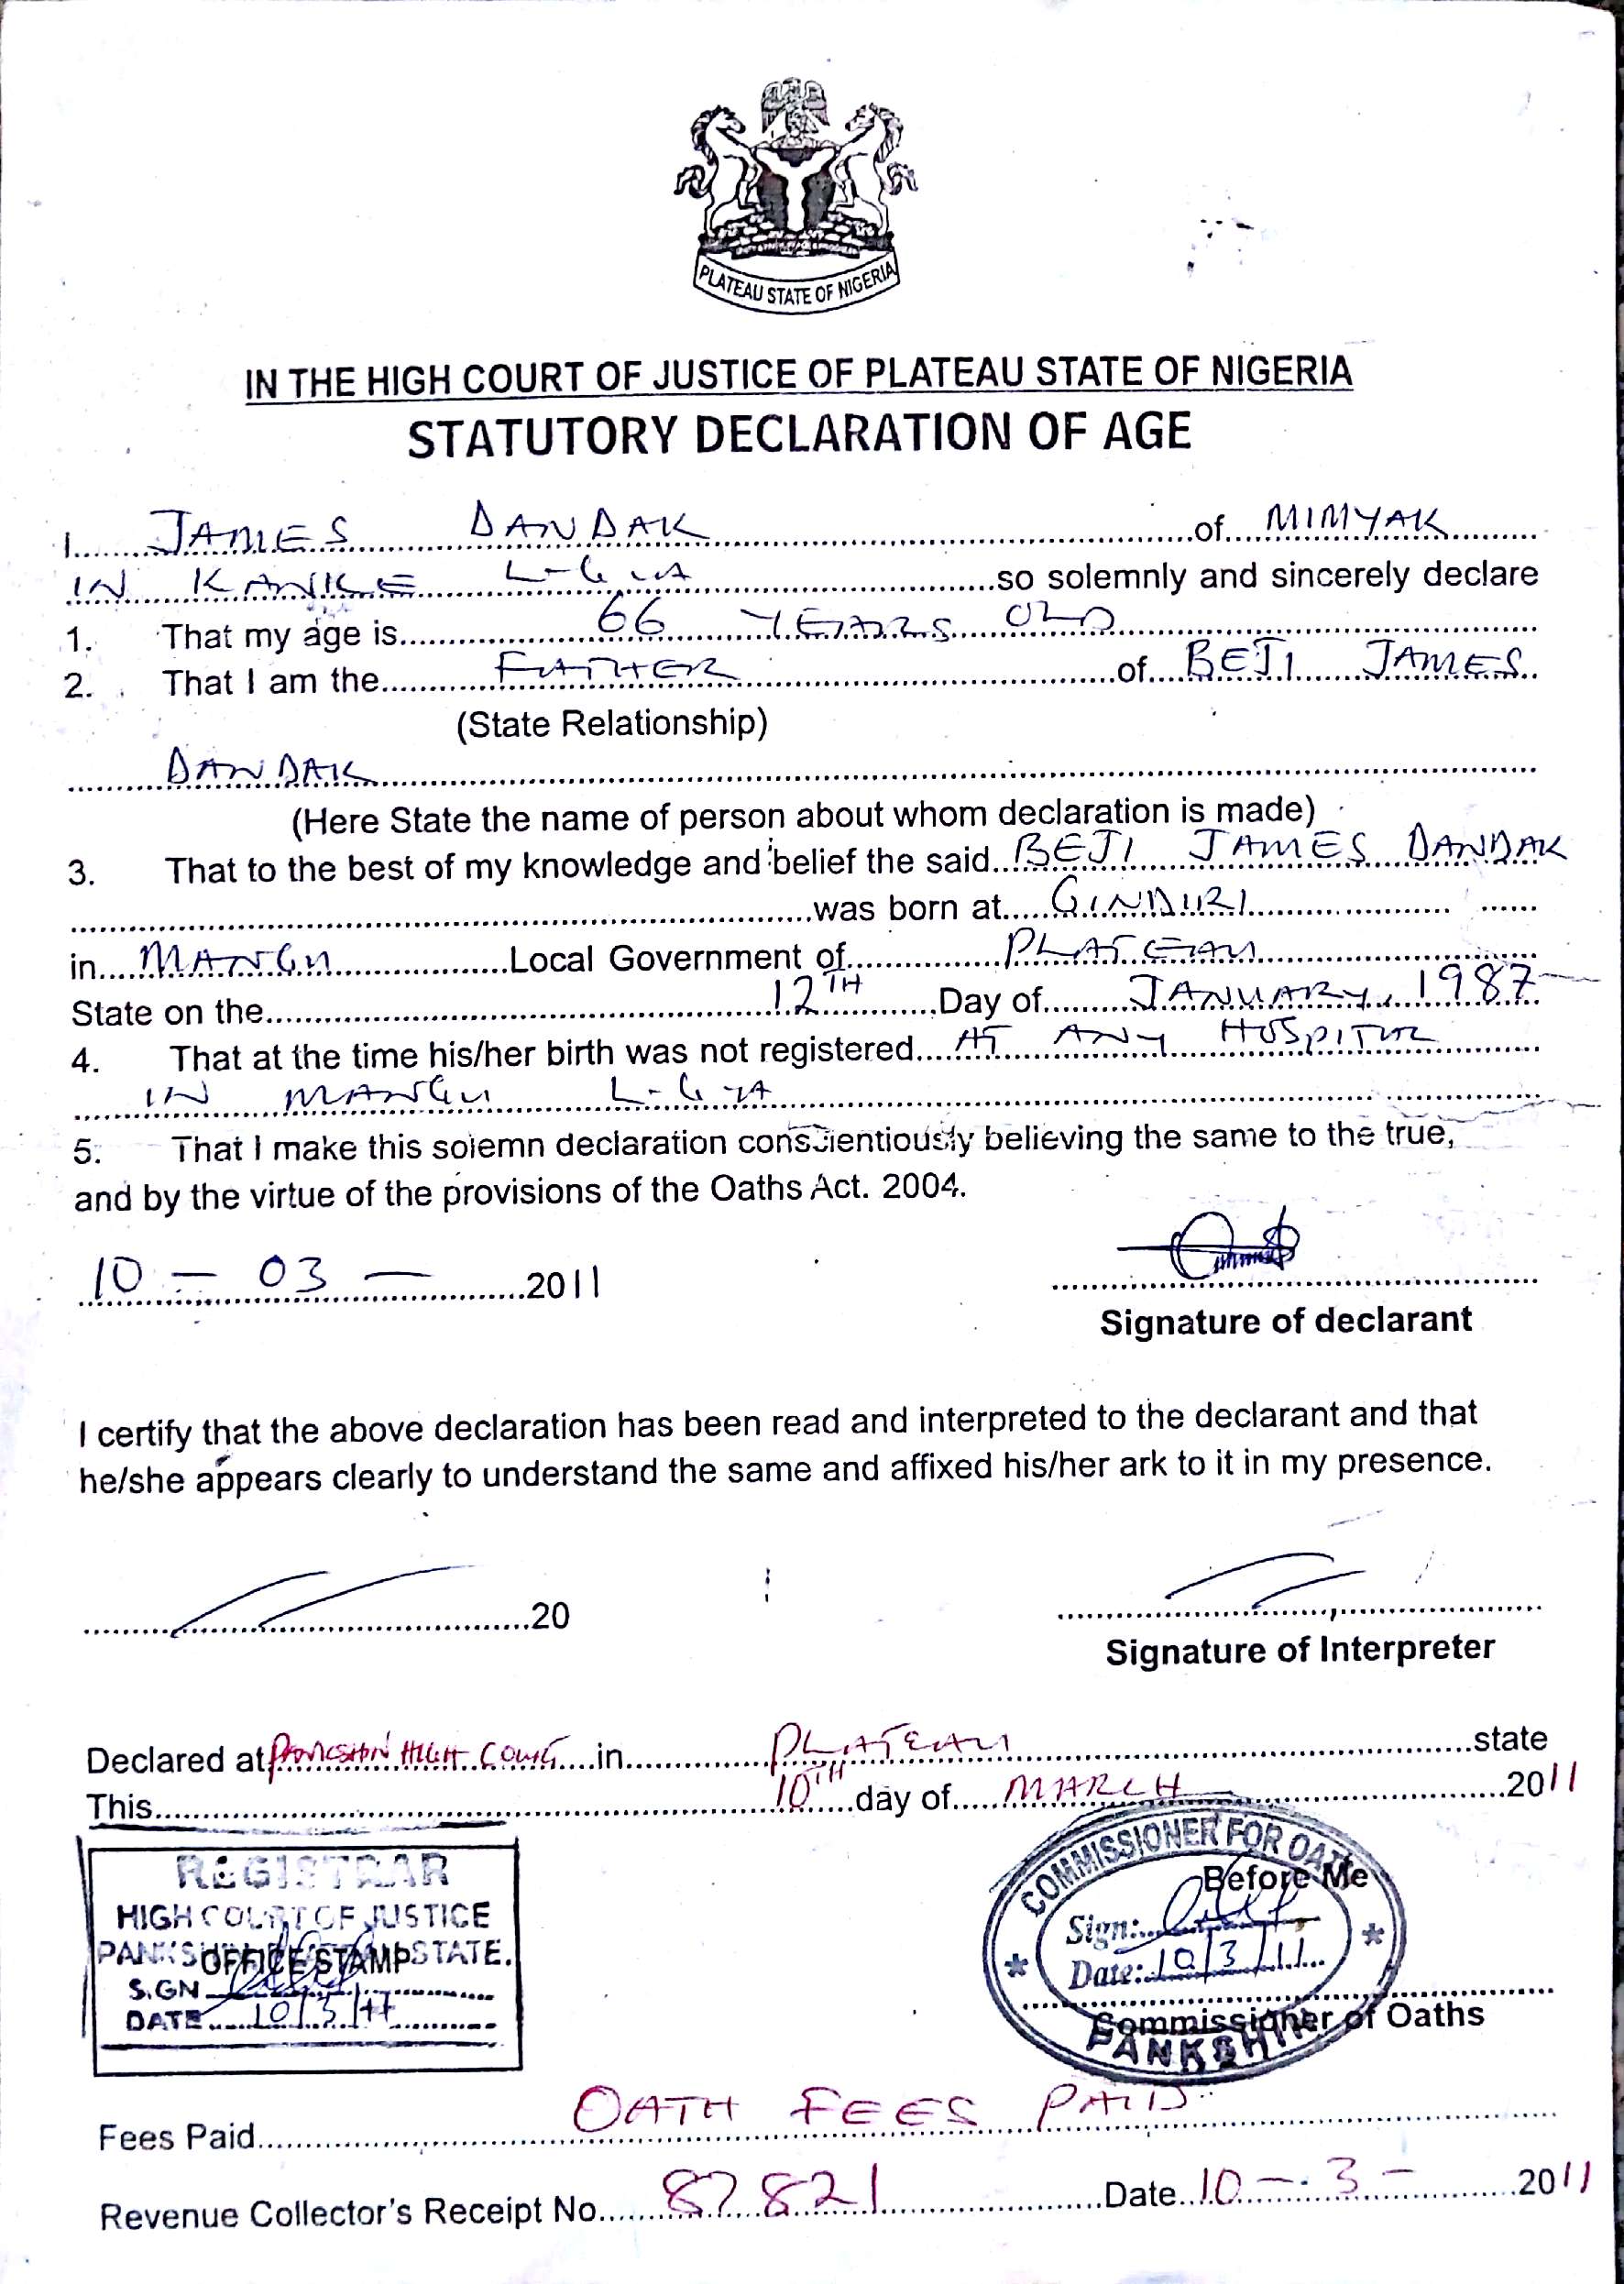 PLATEAU STATE OF NIGERIA
IN THE HIGH COURT OF JUSTICE OF PLATEAU STATE OF NIGERIA
STATUTORY DECLARATION OF AGE
I.......JAMES DANDAK.......of...MIMYAK.......
IN KANKE L-GUA.......so solemnly and sincerely declare
1. That my age is.......66 YEARS OLD.......
2. That I am the.......FATHER.......of...BEJI JAMES.
(State Relationship)
.......DANDAK.......
(Here State the name of person about whom declaration is made)
3. That to the best of my knowledge and belief the said..BEJI JAMES DANDAK
.......was born at.....GINDIRI.......
in....MANGU.......Local Government of.......PLATEAU.......
State on the.......12TH.......Day of.......JANUARY, 1987
4. That at the time his/her birth was not registered....AT ANY HOSPITAL
IN MANGU L-GUA.......
5. That I make this solemn declaration conscientiously believing the same to the true,
and by the virtue of the provisions of the Oaths Act. 2004.
10 - 03 - .......2011
Signature of declarant
I certify that the above declaration has been read and interpreted to the declarant and that
he/she appears clearly to understand the same and affixed his/her ark to it in my presence.
.......20
Signature of Interpreter
Declared at PANKSHIN HIGH COURT...in.......PLATEAU.......state
This.......10TH.....day of.....MARCH.......2011
REGISTRAR
HIGH COURT OF JUSTICE
STATE.
OFFICE STAMP
SIGN
DATE
COMMISSIONER FOR OATH
Before Me
Sign:
Date: 10/3/11
Commissioner of Oaths
PANKSHIN
Fees Paid.......OATH FEES PAID
Revenue Collector's Receipt No.......87821.......Date..10 - 3 - .......2011